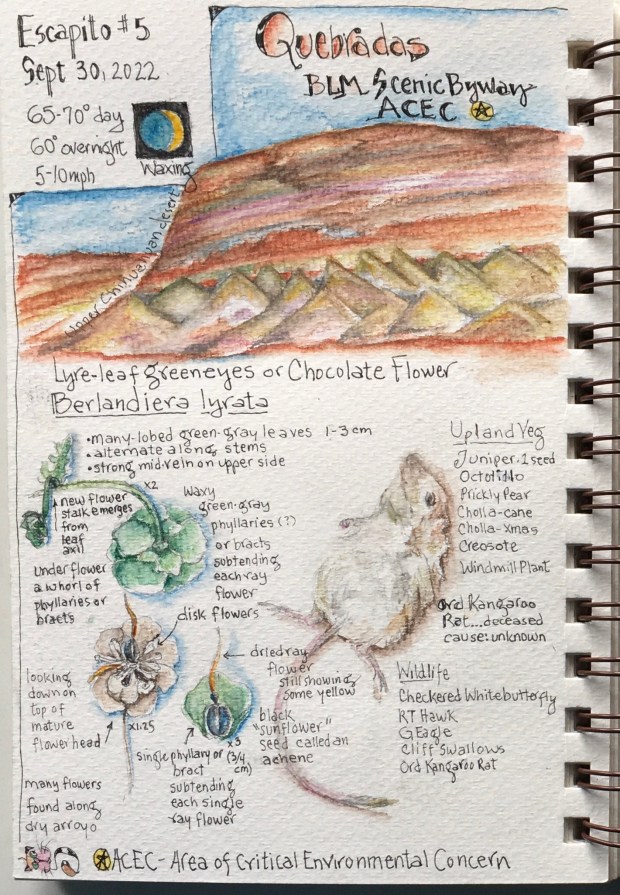 Escapito #5
Sept 30, 2022
65-70° day
60° overnight
5-10mph
Waxing
Quebradas
BLM Scenic Byway
ACEC
Chihuahuan desert
Lyre-leaf greeneyes or Chocolate Flower
Berlandiera lyrata
•many-lobed green-gray leaves 1-3cm
•alternate along stems
•strong mid-vein on upper side
x2
new flower
stalk emerges
from
leaf
axil
waxy
green-gray
phyllaries(?)
or bracts
subtending
each ray
flower
under flower
a whorl of
phyllaries or
bracts
disk flowers
looking
down on
top of
mature
flowerhead
x1.25
dried ray
flower
still showing
some yellow
black
"sunflower"
seed called an
achene
x3
(3/4
cm)
single phyllary or
bract
subtending
each single
ray flower
many flowers
found along
dry arroyo
Upland Veg
Juniper-1seed
Ocotillo
Prickly Pear
Cholla-cane
Cholla-xmas
Creosote
Windmill Plant
Ord Kangaroo
Rat...deceased
cause: unknown
Wildlife
Checkered White butterfly
RT Hawk
G Eagle
Cliff Swallows
Ord Kangaroo Rat
ACEC-Area of Critical Environmental Concern